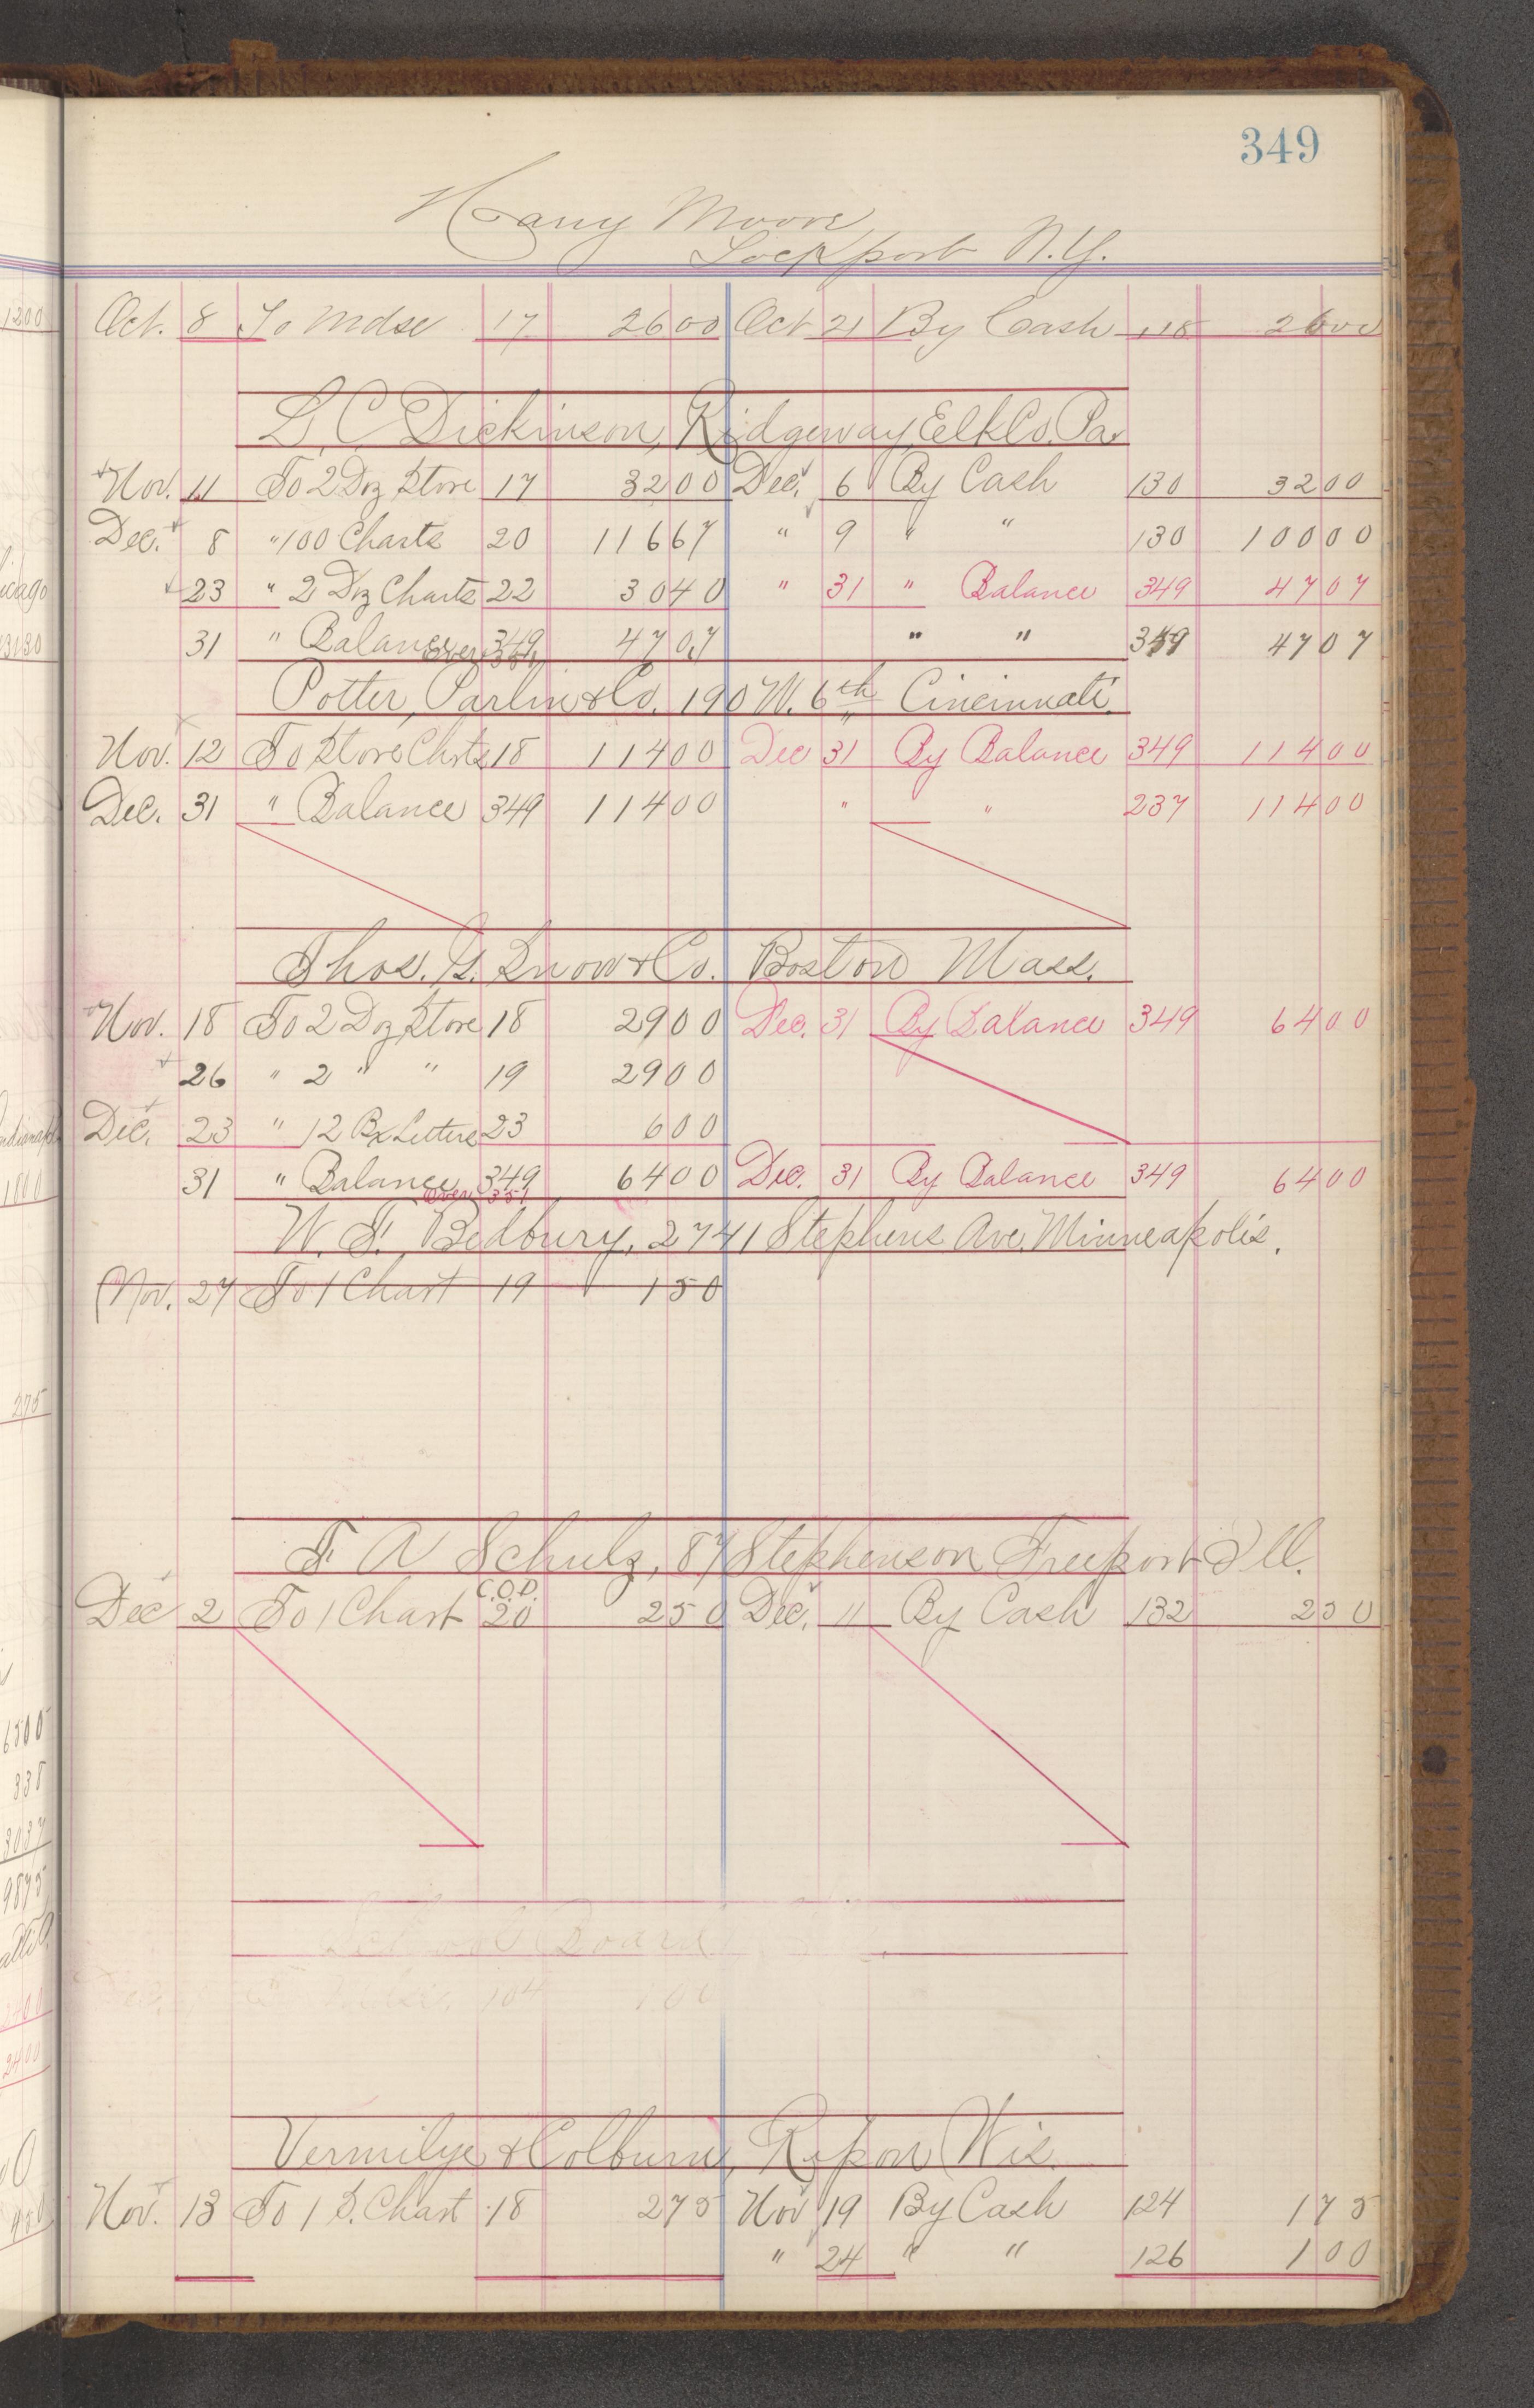 349
Harry Moore
Lockport N.Y.
Oct. 8 To Mdse 17 26 00 Oct 21 By Cash 118 26 00
L. C. Dickinson, Ridgeway, Elk Co. Pa.
Nov. 11 To 2 Doz Store 17 32 00 Dec. 6 By Cash 130 32 00
Dec. 8 " 100 Charts 20 116 67 " 9 " " 130 100 00
23 " 2 Doz Charts 22 30 40 " 31 " Balance 349 47 07
31 " Balance 349 47 07 " " 349 47 07
Over 351
Potter, Parlin & Co. 190 W. 6th Cincinnati.
Nov. 12 To Store Chrts 18 114 00 Dec 31 By Balance 349 114 00
Dec. 31 " Balance 349 114 00 " " 237 114 00
Thos. G. Snow & Co. Boston Mass.
Nov. 18 To 2 Doz Store 18 29 00 Dec. 31 By Balance 349 64 00
26 " 2 " " 19 29 00
Dec. 23 " 12 Bx Letters 23 6 00
31 " Balance 349 64 00 Dec. 31 By Balance 349 64 00
Over 351
W. F. Bedbury, 2741 Stephens Ave. Minneapolis.
Nov. 27 To 1 Chart 19 1 50
F. A. Schulz, 87 Stephenson Freeport Ill.
C.O.D.
Dec 2 To 1 Chart 20 2 50 Dec. 11 By Cash 132 2 50
School Board
104 1 00
Vermilye & Colburn, Ripon Wis.
Nov. 13 To 1 S. Chart 18 2 75 Nov 19 By Cash 124 1 75
" 24 " " 126 1 00